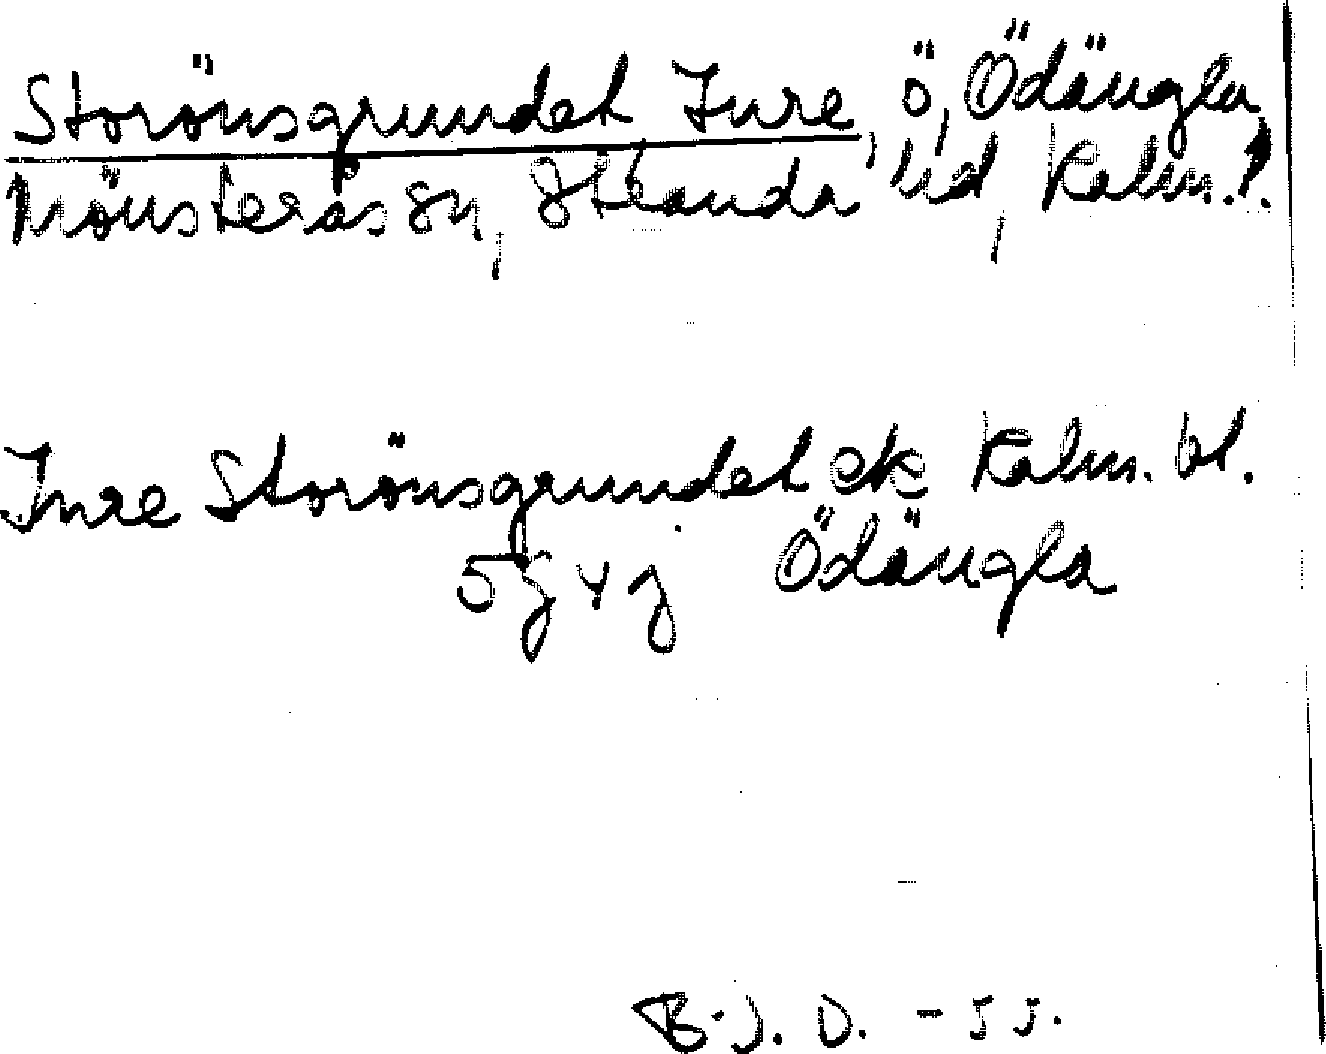 Storönsgrundet Inre, ö, Ödängla,
Mönsterås sn, Stranda hd, Kalm. l.
Inre Storönsgrundet ek Kalm. bl.
5g4g Ödängla
B.J.D. - 55.